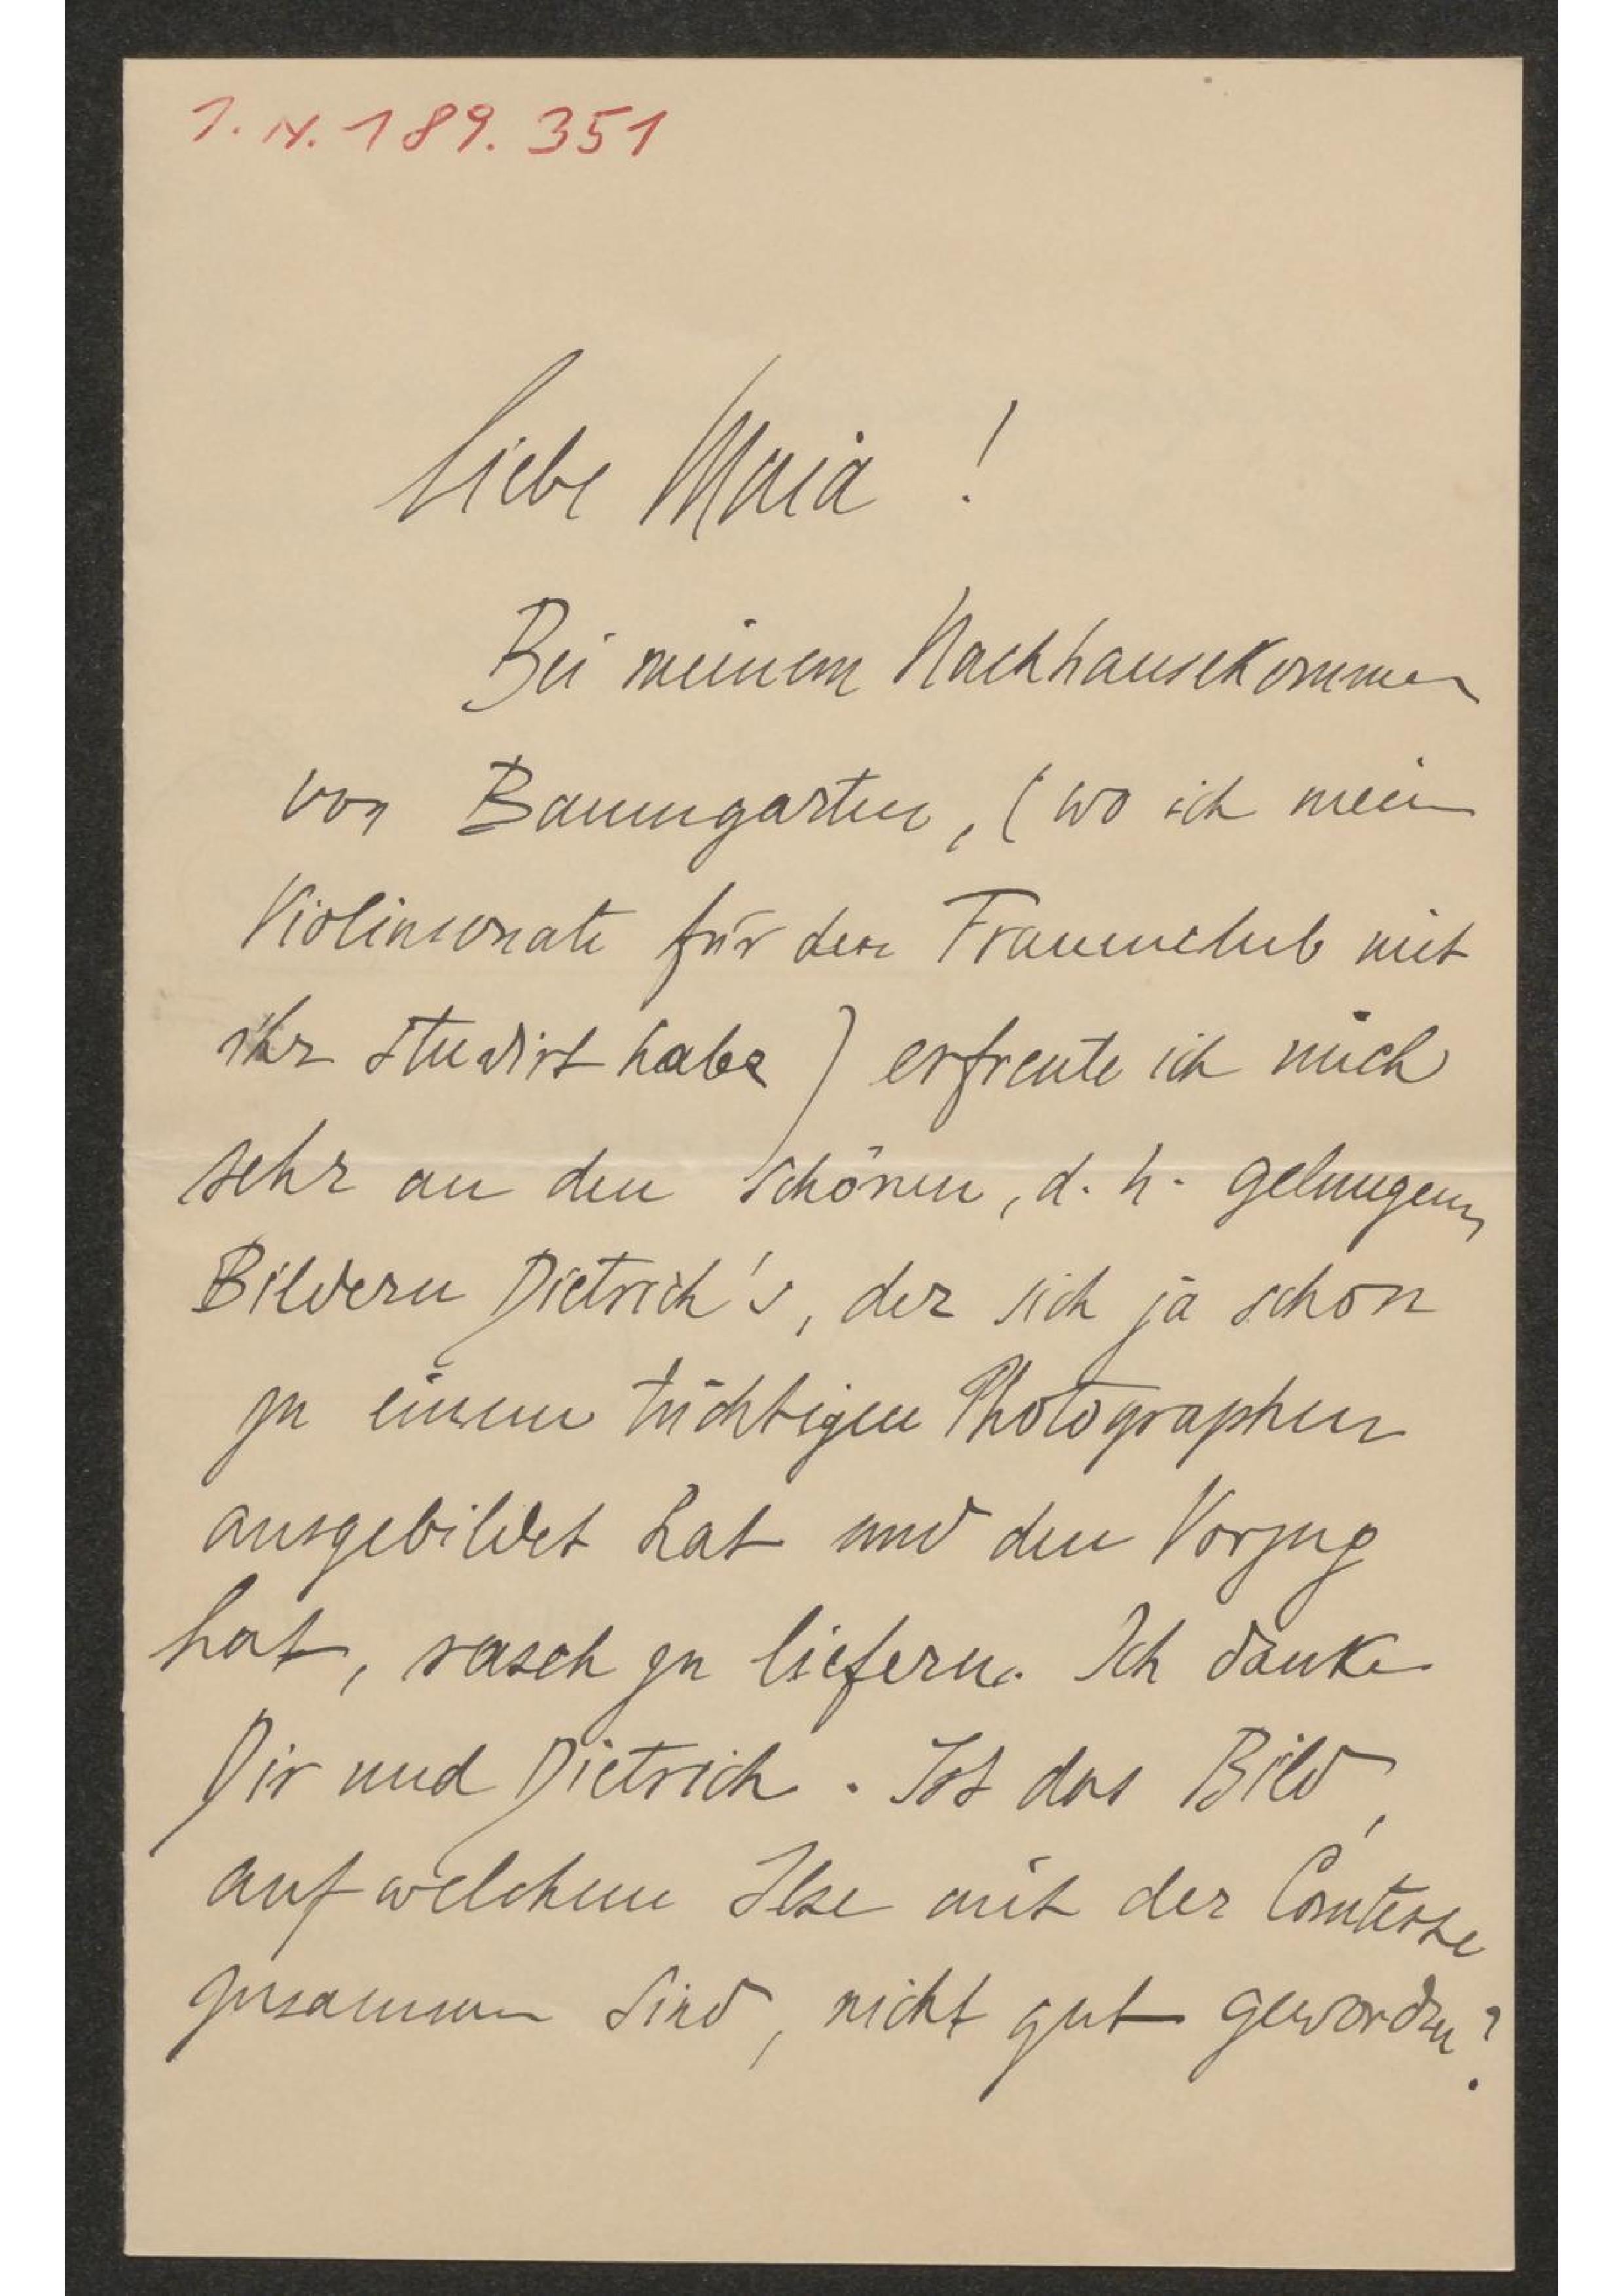 I. N. 189.351
Liebe Maia!
Bei meinem Nachhausekommen
von Baumgarten, (wo ich meine
Violinsonate für den Frauenclub mit
ihr studirt habe) erfreute ich mich
sehr an den schönen, d. h. gelungenen
Bildern Dietrich's, der sich ja schon
zu einem tüchtigen Photographen
ausgebildet hat und den Vorzug
hat, rasch zu liefern. Ich danke
Dir und Dietrich. Ist das Bild,
auf welchem Ilse mit der Comtesse
zusammen sind, nicht gut geworden?